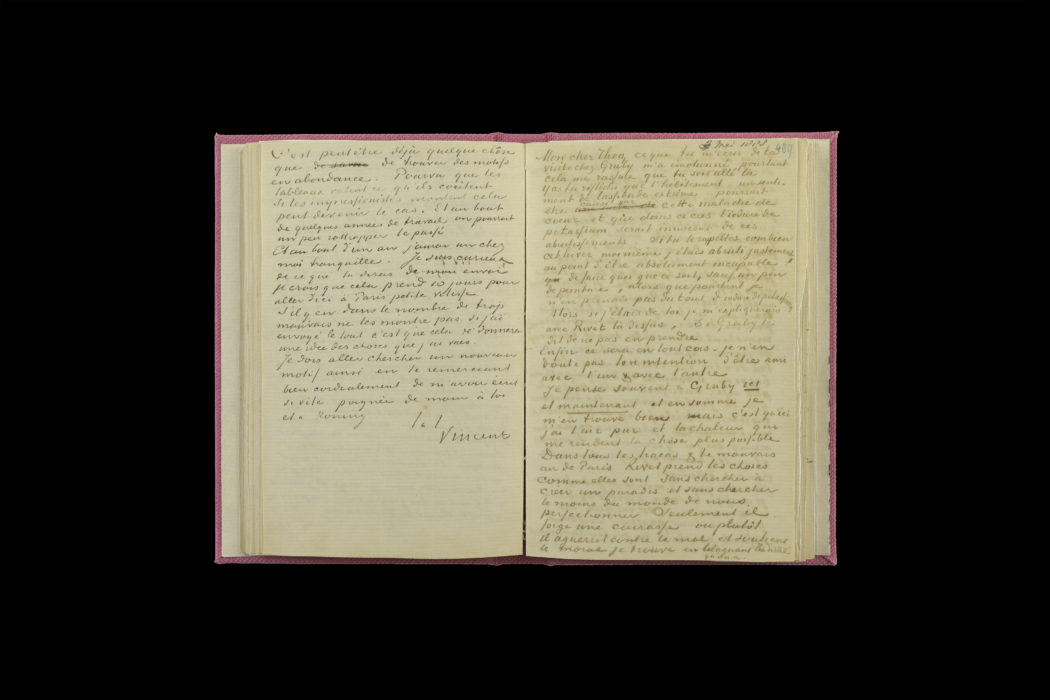 C'est peut être déjà quelque chôse
que de savoir de trouver des motifs
en abondance. Pourvu que les
tableaux valent ce qu'ils coûtent
Si les impressionistes montent cela
peut devenir le cas. Et au bout
de quelques années de travail on pourrait
un peu rattrapper le passé
Et au bout d'un an j'aurai un chez
moi tranquille. Je suis curieux
de ce que tu diras de mon envoi
je crois que cela prend 10 jours pour
aller d'ici à Paris petite vitesse
S'il y en dans le nombre de trop
mauvais ne les montre pas. si j'ai
envoyé le tout c'est que cela te donnera
une idée des choses que j'ai vues.
Je dois aller chercher un nouveau
motif ainsi en te remerciant
bien cordialement de m'avoir écrit
si vite poignée de main à toi
et à Koning
t. à t.
Vincent
Mei 1888 489
Mon cher Theo, ce que tu m'ecris de ta
visite chez Gruby m'a emotionné pourtant
cela me rassure que tu sois allé là
Y as tu réfléchi que l'hébètement, un senti-
ment de lassitude extrême pourrait
être causé par cette maladie de
coeur et que dans ce cas l'iodure de
potassium serait innocent de ces
abrutissements. Si tu te rapèlles combien
cet hiver moi même j'étais abruti justement
au point d'être absolument incapable
de faire quoi que ce soit, sauf un peu
de peinture, alors que pourtant je
n'en prenais pas du tout d'iodure de potassium
Alors si j'étais de toi je m'expliquerais
avec Rivet là dessus, si Gruby te
dit de ne pas en prendre.
Enfin ce sera en tout cas – je n'en
doute pas ton intention d'être ami
avec l'un & avec l'autre
Je pense souvent à Gruby ici
et maintenant et en somme je
m'en trouve bien mais c'est qu'ici
j'ai l'air pur et la chaleur qui
me rendent la chose plus possible
Dans tous les tracas & le mauvais
air de Paris Rivet prend les chôses
comme elles sont sans chercher à
créer un paradis et sans chercher
le moins du monde de nous
perfectionner. Seulement il
forge une cuirasse ou plutôt
il aguerrit contre le mal et soutient
le moral je trouve en blaguant le mal
qu'on a.